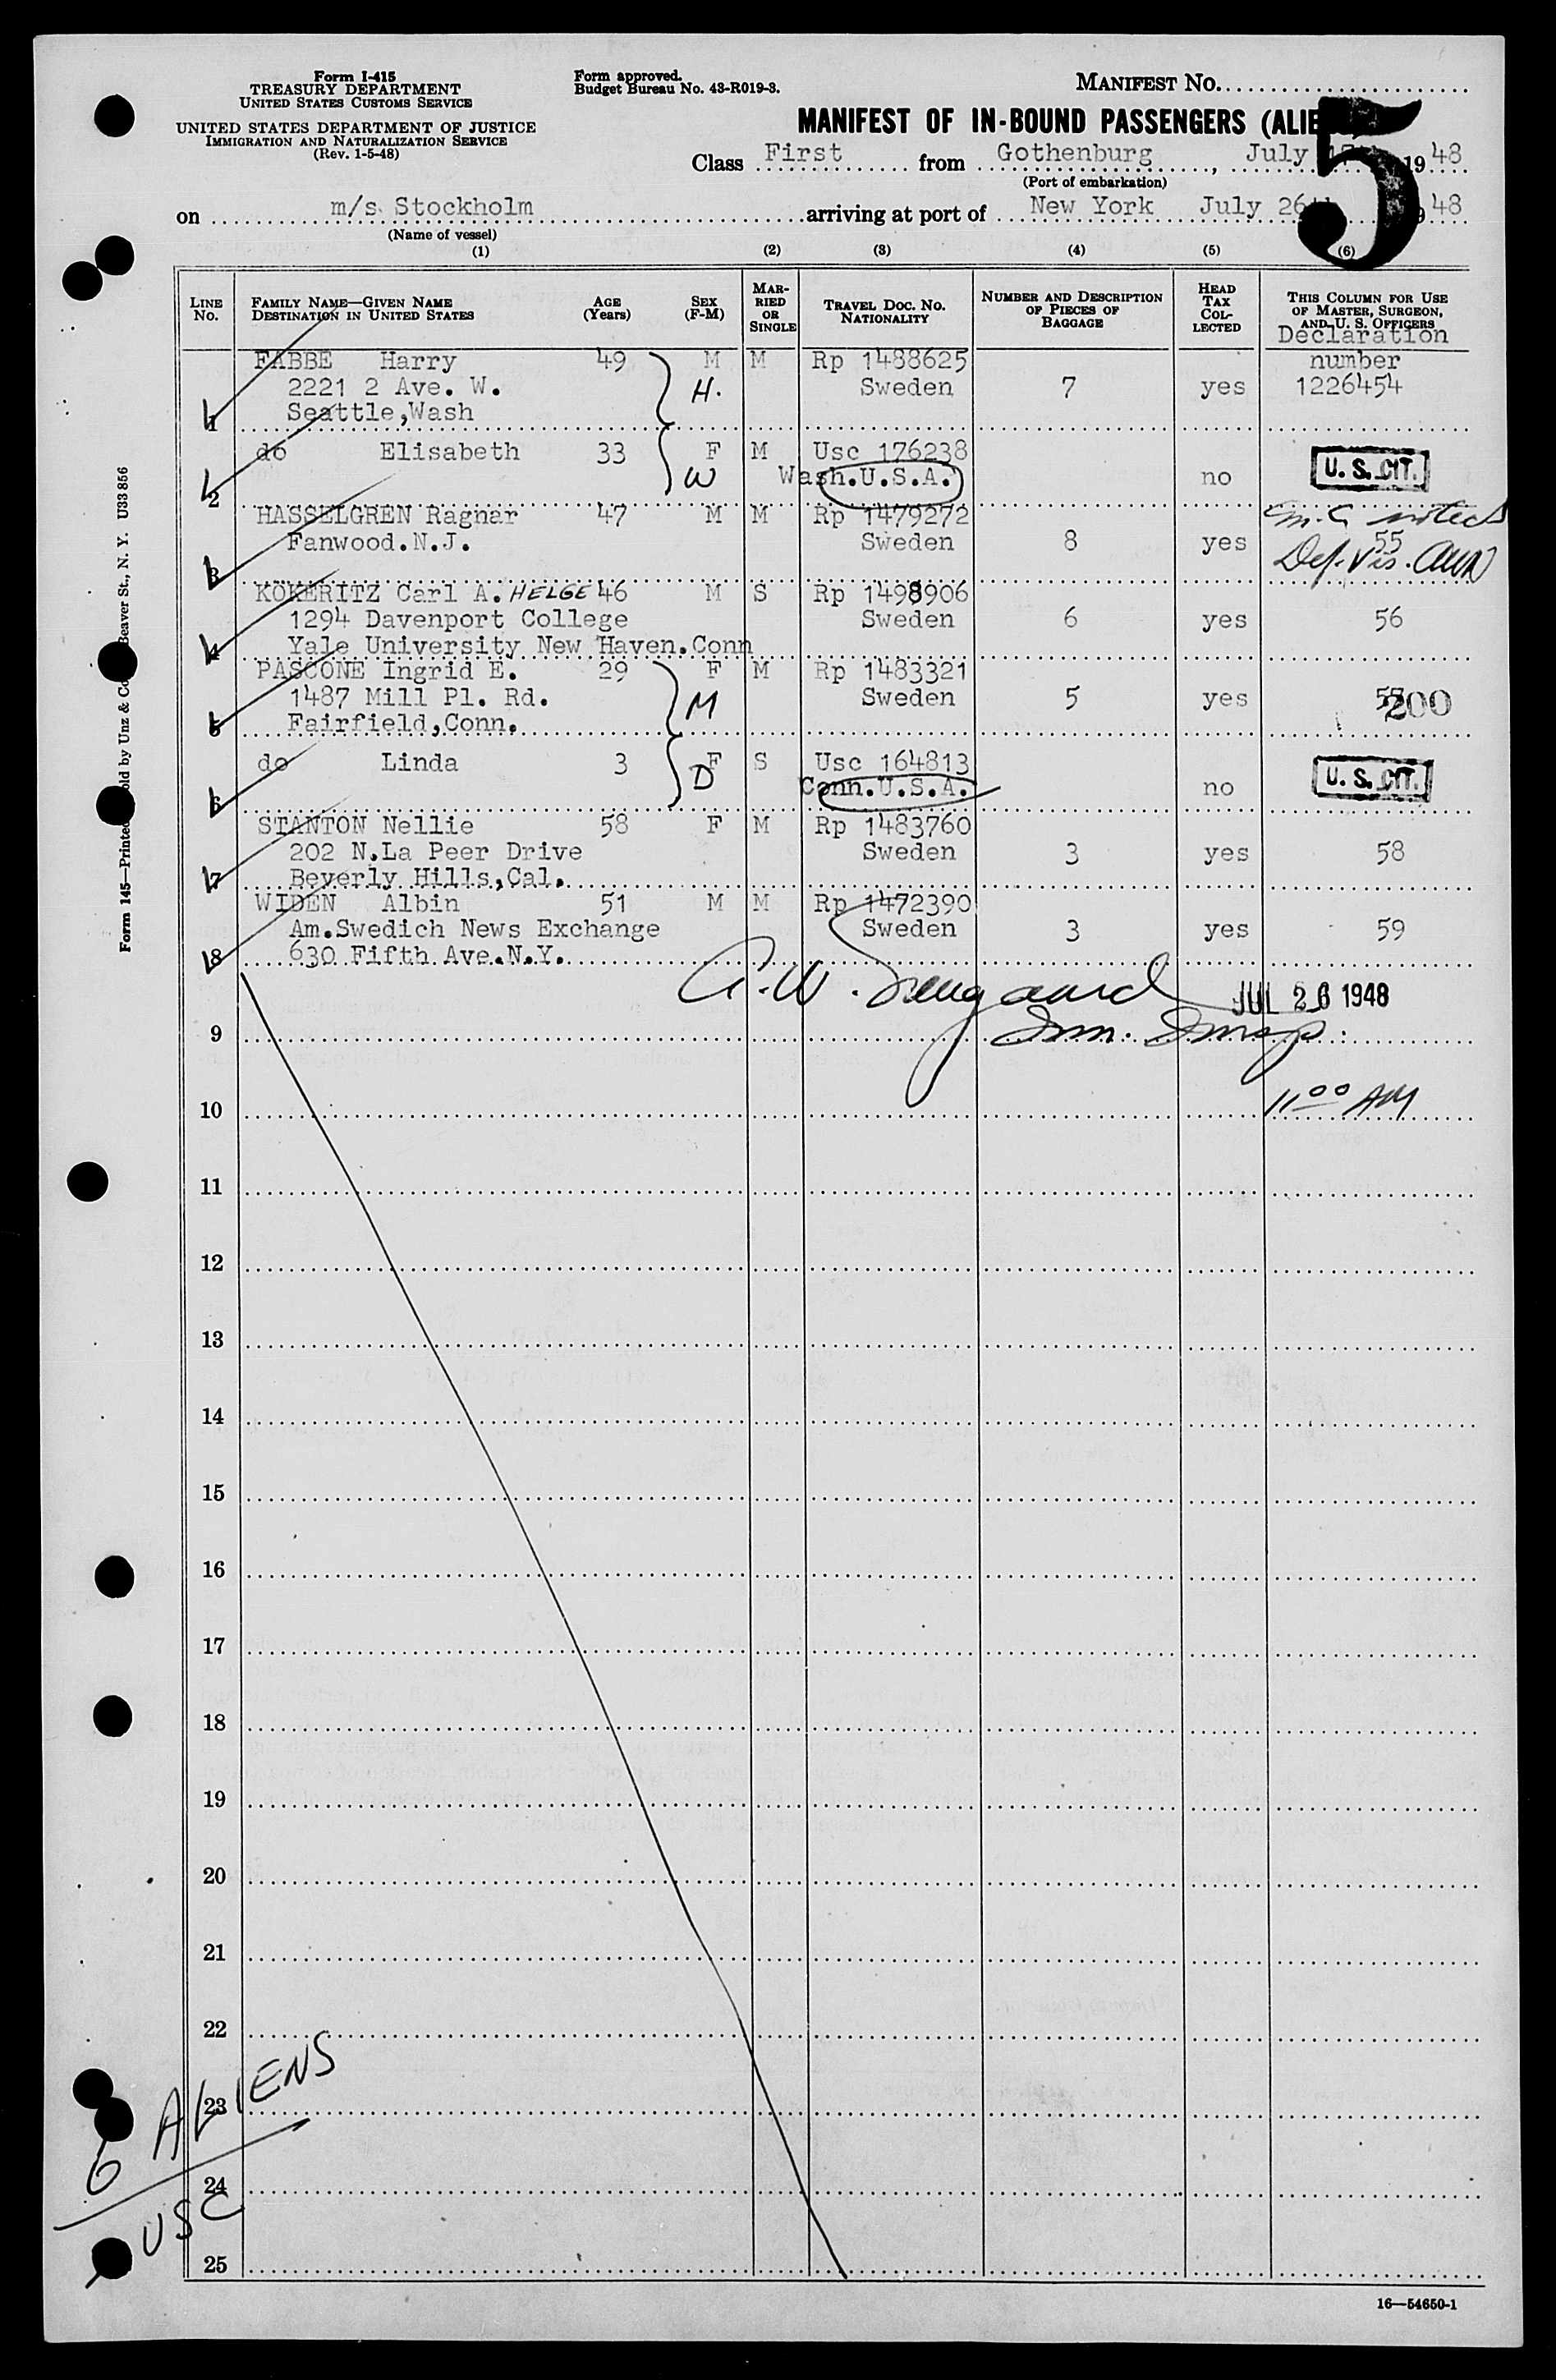 Form I-415
TREASURY DEPARTMENT
UNITED STATES CUSTOMS SERVICE
UNITED STATES DEPARTMENT OF JUSTICE
IMMIGRATION AND NATURALIZATION SERVICE
(Rev. 1-5-48)
Form approved.
Budget Bureau No. 43-R019-3.
MANIFEST No.
5
MANIFEST OF IN-BOUND PASSENGERS (ALIE
Class First from Gothenburg, July 17 1948
(Port of embarkation)
on m/s Stockholm arriving at port of New York July 26th 1948
(Name of vessel)
(1) (2) (3) (4) (5) (6)
LINE No.
FAMILY NAME—GIVEN NAME
DESTINATION IN UNITED STATES
AGE (Years)
SEX (F-M)
MARRIED OR SINGLE
TRAVEL DOC. NO.
NATIONALITY
NUMBER AND DESCRIPTION OF PIECES OF BAGGAGE
HEAD TAX COLLECTED
THIS COLUMN FOR USE OF MASTER, SURGEON, AND U. S. OFFICERS
Declaration
number
1 FABBE Harry 49 M M Rp 1488625
2221 2 Ave. W. H. Sweden 7 yes 1226454
Seattle,Wash
2 do Elisabeth 33 F M Usc 176238
W Wash.U.S.A. no U. S. CIT.
3 HASSELGREN Ragnar 47 M M Rp 1479272
Fanwood.N.J. Sweden 8 yes 55
4 KOKERITZ Carl A. HELGE 46 M S Rp 1498906
1294 Davenport College Sweden 6 yes 56
Yale University New Haven.Conn
5 PASCONE Ingrid E. 29 F M Rp 1483321
1487 Mill Pl. Rd. M Sweden 5 yes 57 200
Fairfield,Conn.
6 do Linda 3 F S Usc 164813
D Conn.U.S.A. no U. S. CIT.
7 STANTON Nellie 58 F M Rp 1483760
202 N.La Peer Drive Sweden 3 yes 58
Beverly Hills,Cal.
8 WIDEN Albin 51 M M Rp 1472390
Am.Swedich News Exchange Sweden 3 yes 59
630 Fifth Ave.N.Y.
JUL 26 1948
9
10 11 00 AM
11
12
13
14
15
16
17
18
19
20
21
22
23
24
25
6 ALIENS
USC
16—54650-1